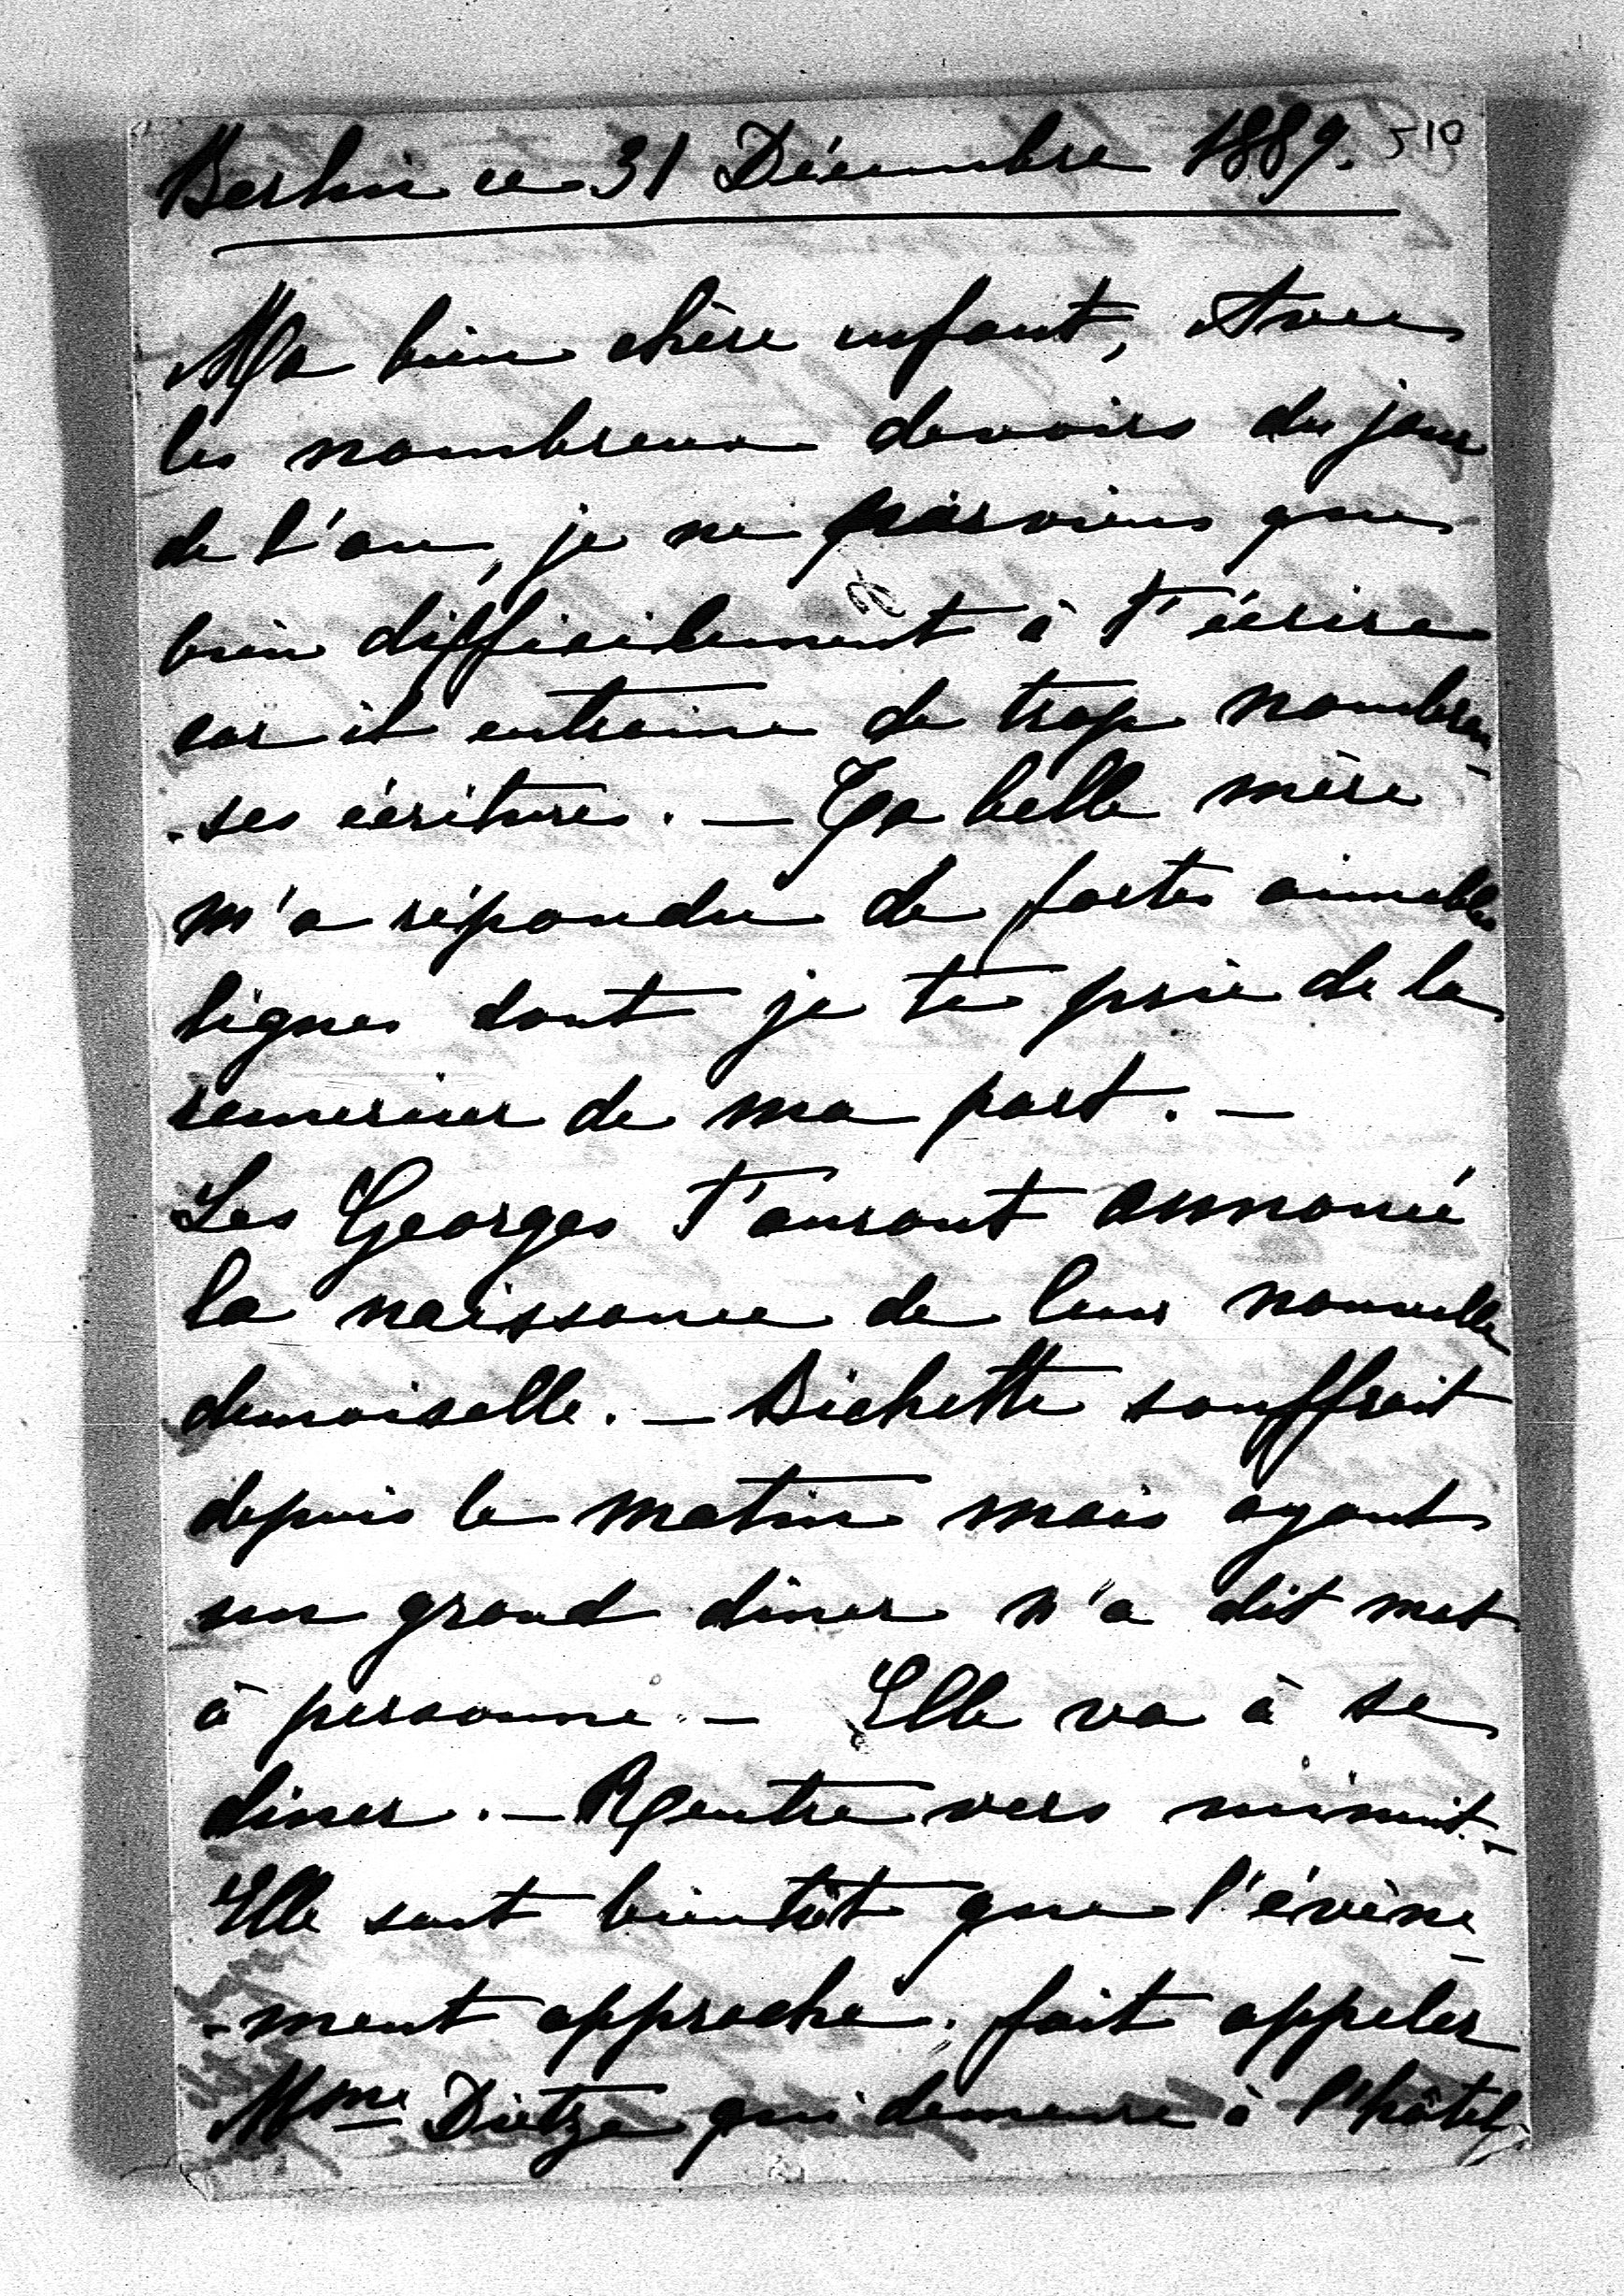 Berlin ce 31 Décembre 1889. 510
Ma bien chère enfant, Avec
les nombreux devoirs du jour
de l'an, je ne parviens que
bien difficilement à t'écrire
car il entraine de trop nombreu-
-ses écritures. — Ta belle mère
m'a répondu de fortes aimables
lignes dont je te prie de la
remercier de ma part. —
Les Georges t'auront annoncé
la naissance de leur nouvelle
demoiselle. — Bichette souffrait
depuis le matin mais ayant
un grand diner n'a dit mot
à personne. — Elle va à se
diner. — Rentre vers minuit. —
Elle sent bientôt que l'évène-
-ment approche. fait appeler
Mme Dietze qui demeure à l'hôtel